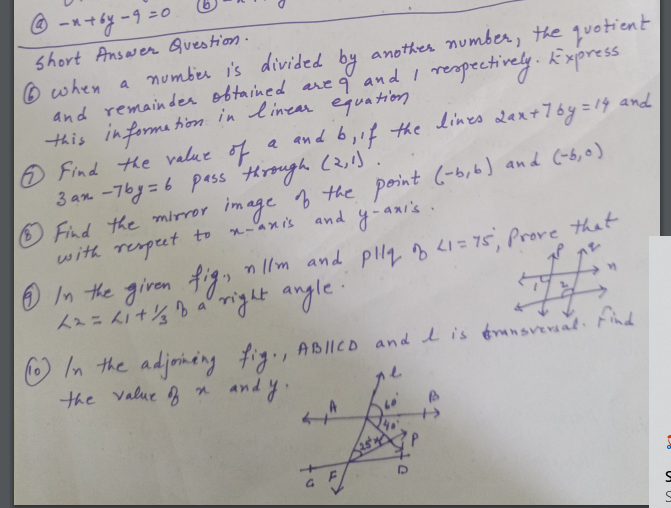 (a) -x+6y-9=0 (b)
Short Answer Question.
(6) when a number is divided by another number, the quotient
and remainder obtained are 9 and 1 respectively. Express
this information in linear equation
(7) Find the value of a and b, if the lines 2ax+7by=14 and
3ax-7by=6 pass through (2,1).
(8) Find the mirror image of the point (-6,6) and (-6,0)
with respect to x-axis and y-axis.
(9) In the given fig., n||m and p||q if <1=75°, Prove that
<2=<1+1/3 of a right angle.
p q
n
1 2
(10) In the adjoining fig., AB||CD and l is transversal. Find
the value of x and y.
l
A 60° B
40°
25° x P
G F D